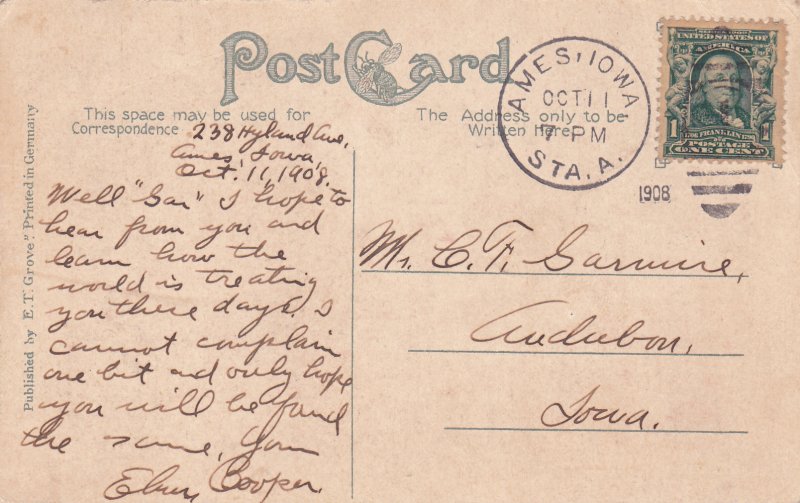 Post Card
This space may be used for
Correspondence
The Address only to be
Written Here
238 Hyland Ave,
Ames, Iowa,
Oct. 11, 1908.
Well "Gar" I hope to
hear from you and
learn how the
world is treating
you these days. I
cannot complain
one bit and only hope
you will be found
the same, Your
Cooper.
Mr. C. F. Garmire,
Audubon,
Iowa.
AMES, IOWA
OCT 11
7 PM
STA. A.
1908
UNITED STATES OF
AMERICA
1
FRANKLIN
POSTAGE
ONE CENT
Published by E. T. Grove. Printed in Germany